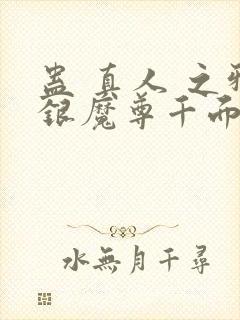 蛊真人之邪
银魔尊千而
水無月千尋